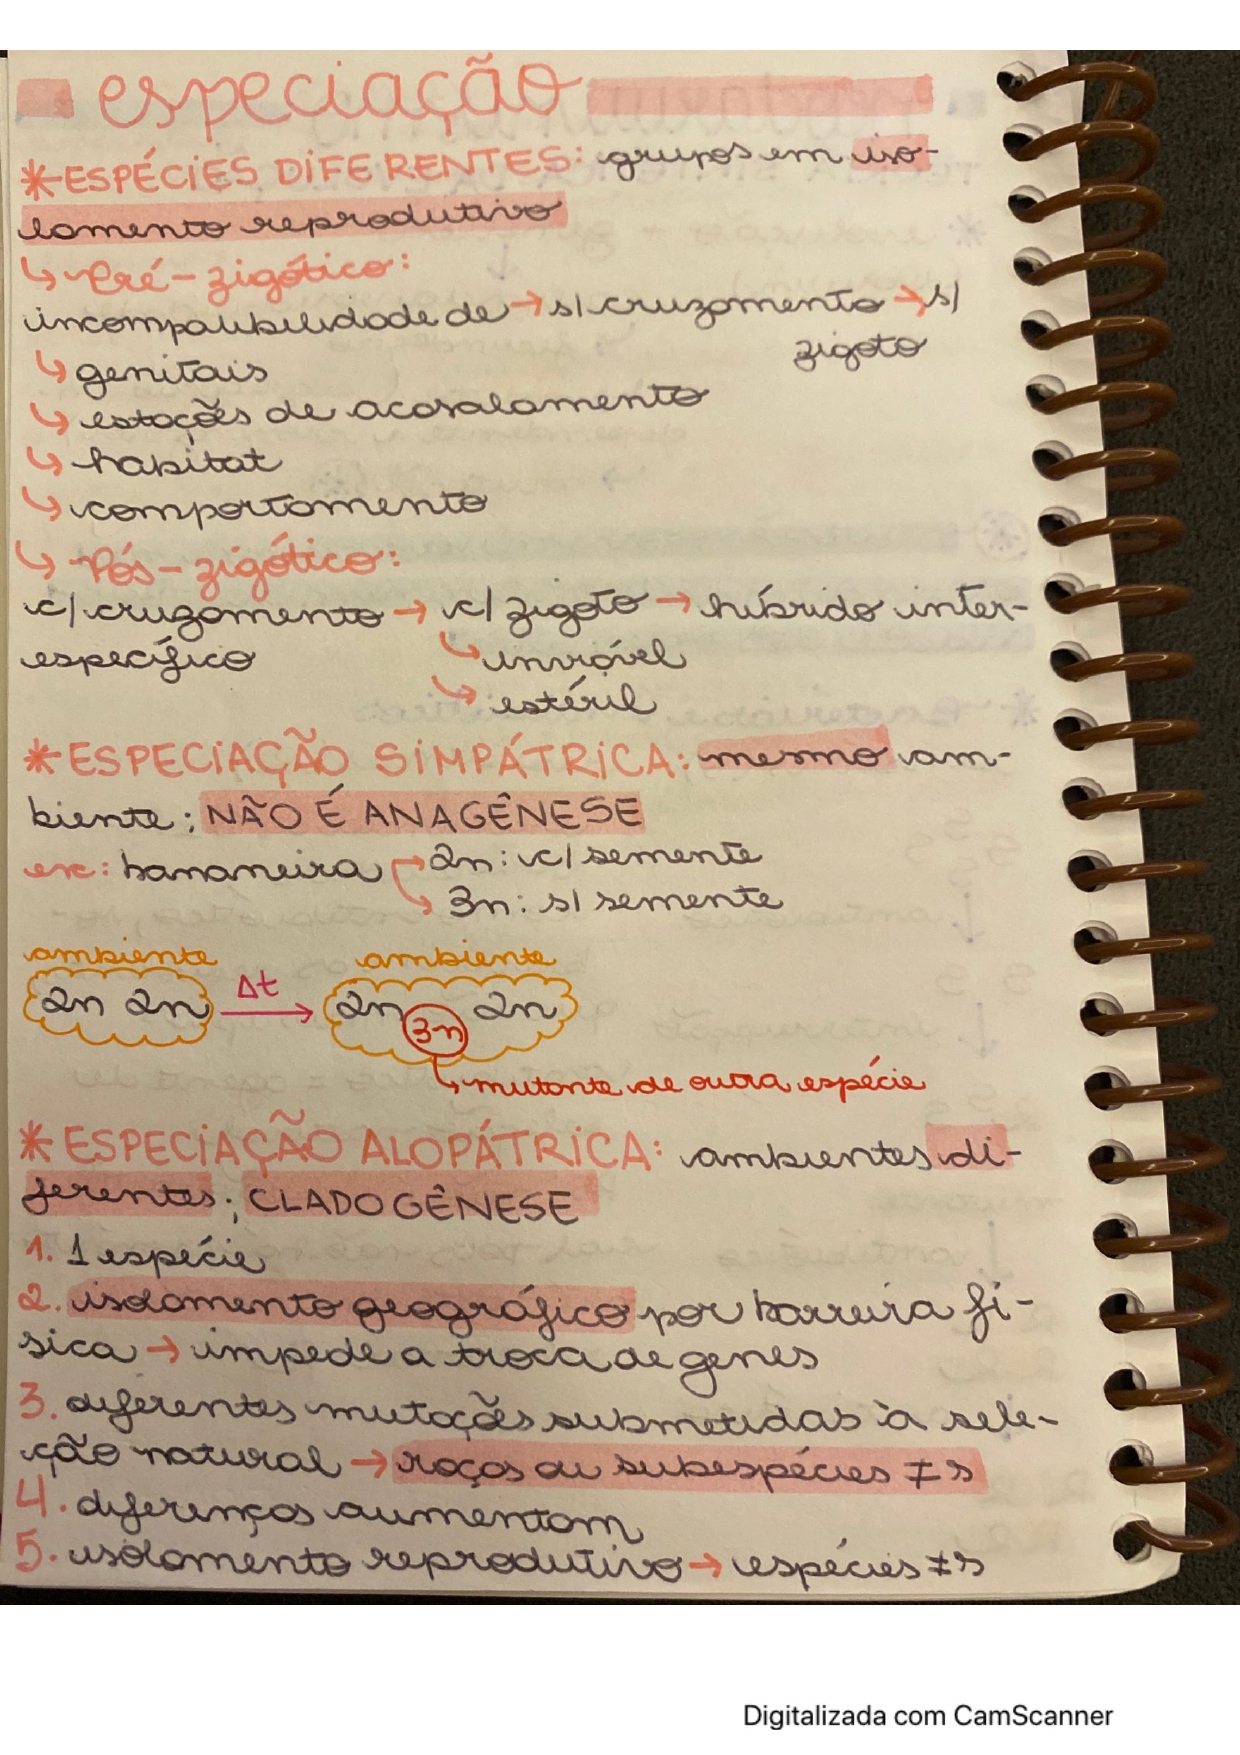 especiação
*ESPÉCIES DIFERENTES: grupos em iso-
lamento reprodutivo
↳ Pré-zigótico:
incompatibilidade de → s/ cruzamento → s/
zigoto
↳ genitais
↳ estações de acasalamento
↳ habitat
↳ comportamento
↳ Pós-zigótico:
c/ cruzamento → c/ zigoto → híbrido inter-
específico
↳ inviável
↳ estéril
*ESPECIAÇÃO SIMPÁTRICA: mesmo am-
biente; NÃO É ANAGÊNESE
ex: bananeira → 2n: c/ semente
↳ 3n: s/ semente
ambiente ambiente
2n 2n Δt → 2n 3n 2n
↳ mutante de outra espécie
* ESPECIAÇÃO ALOPÁTRICA: ambientes di-
ferentes; CLADOGÊNESE
1. 1 espécie
2. isolamento geográfico por barreira fí-
sica → impede a troca de genes
3. diferentes mutações submetidas à sele-
ção natural → raças ou subespécies ≠s
4. diferenças aumentam
5. isolamento reprodutivo → espécies ≠s
Digitalizada com CamScanner